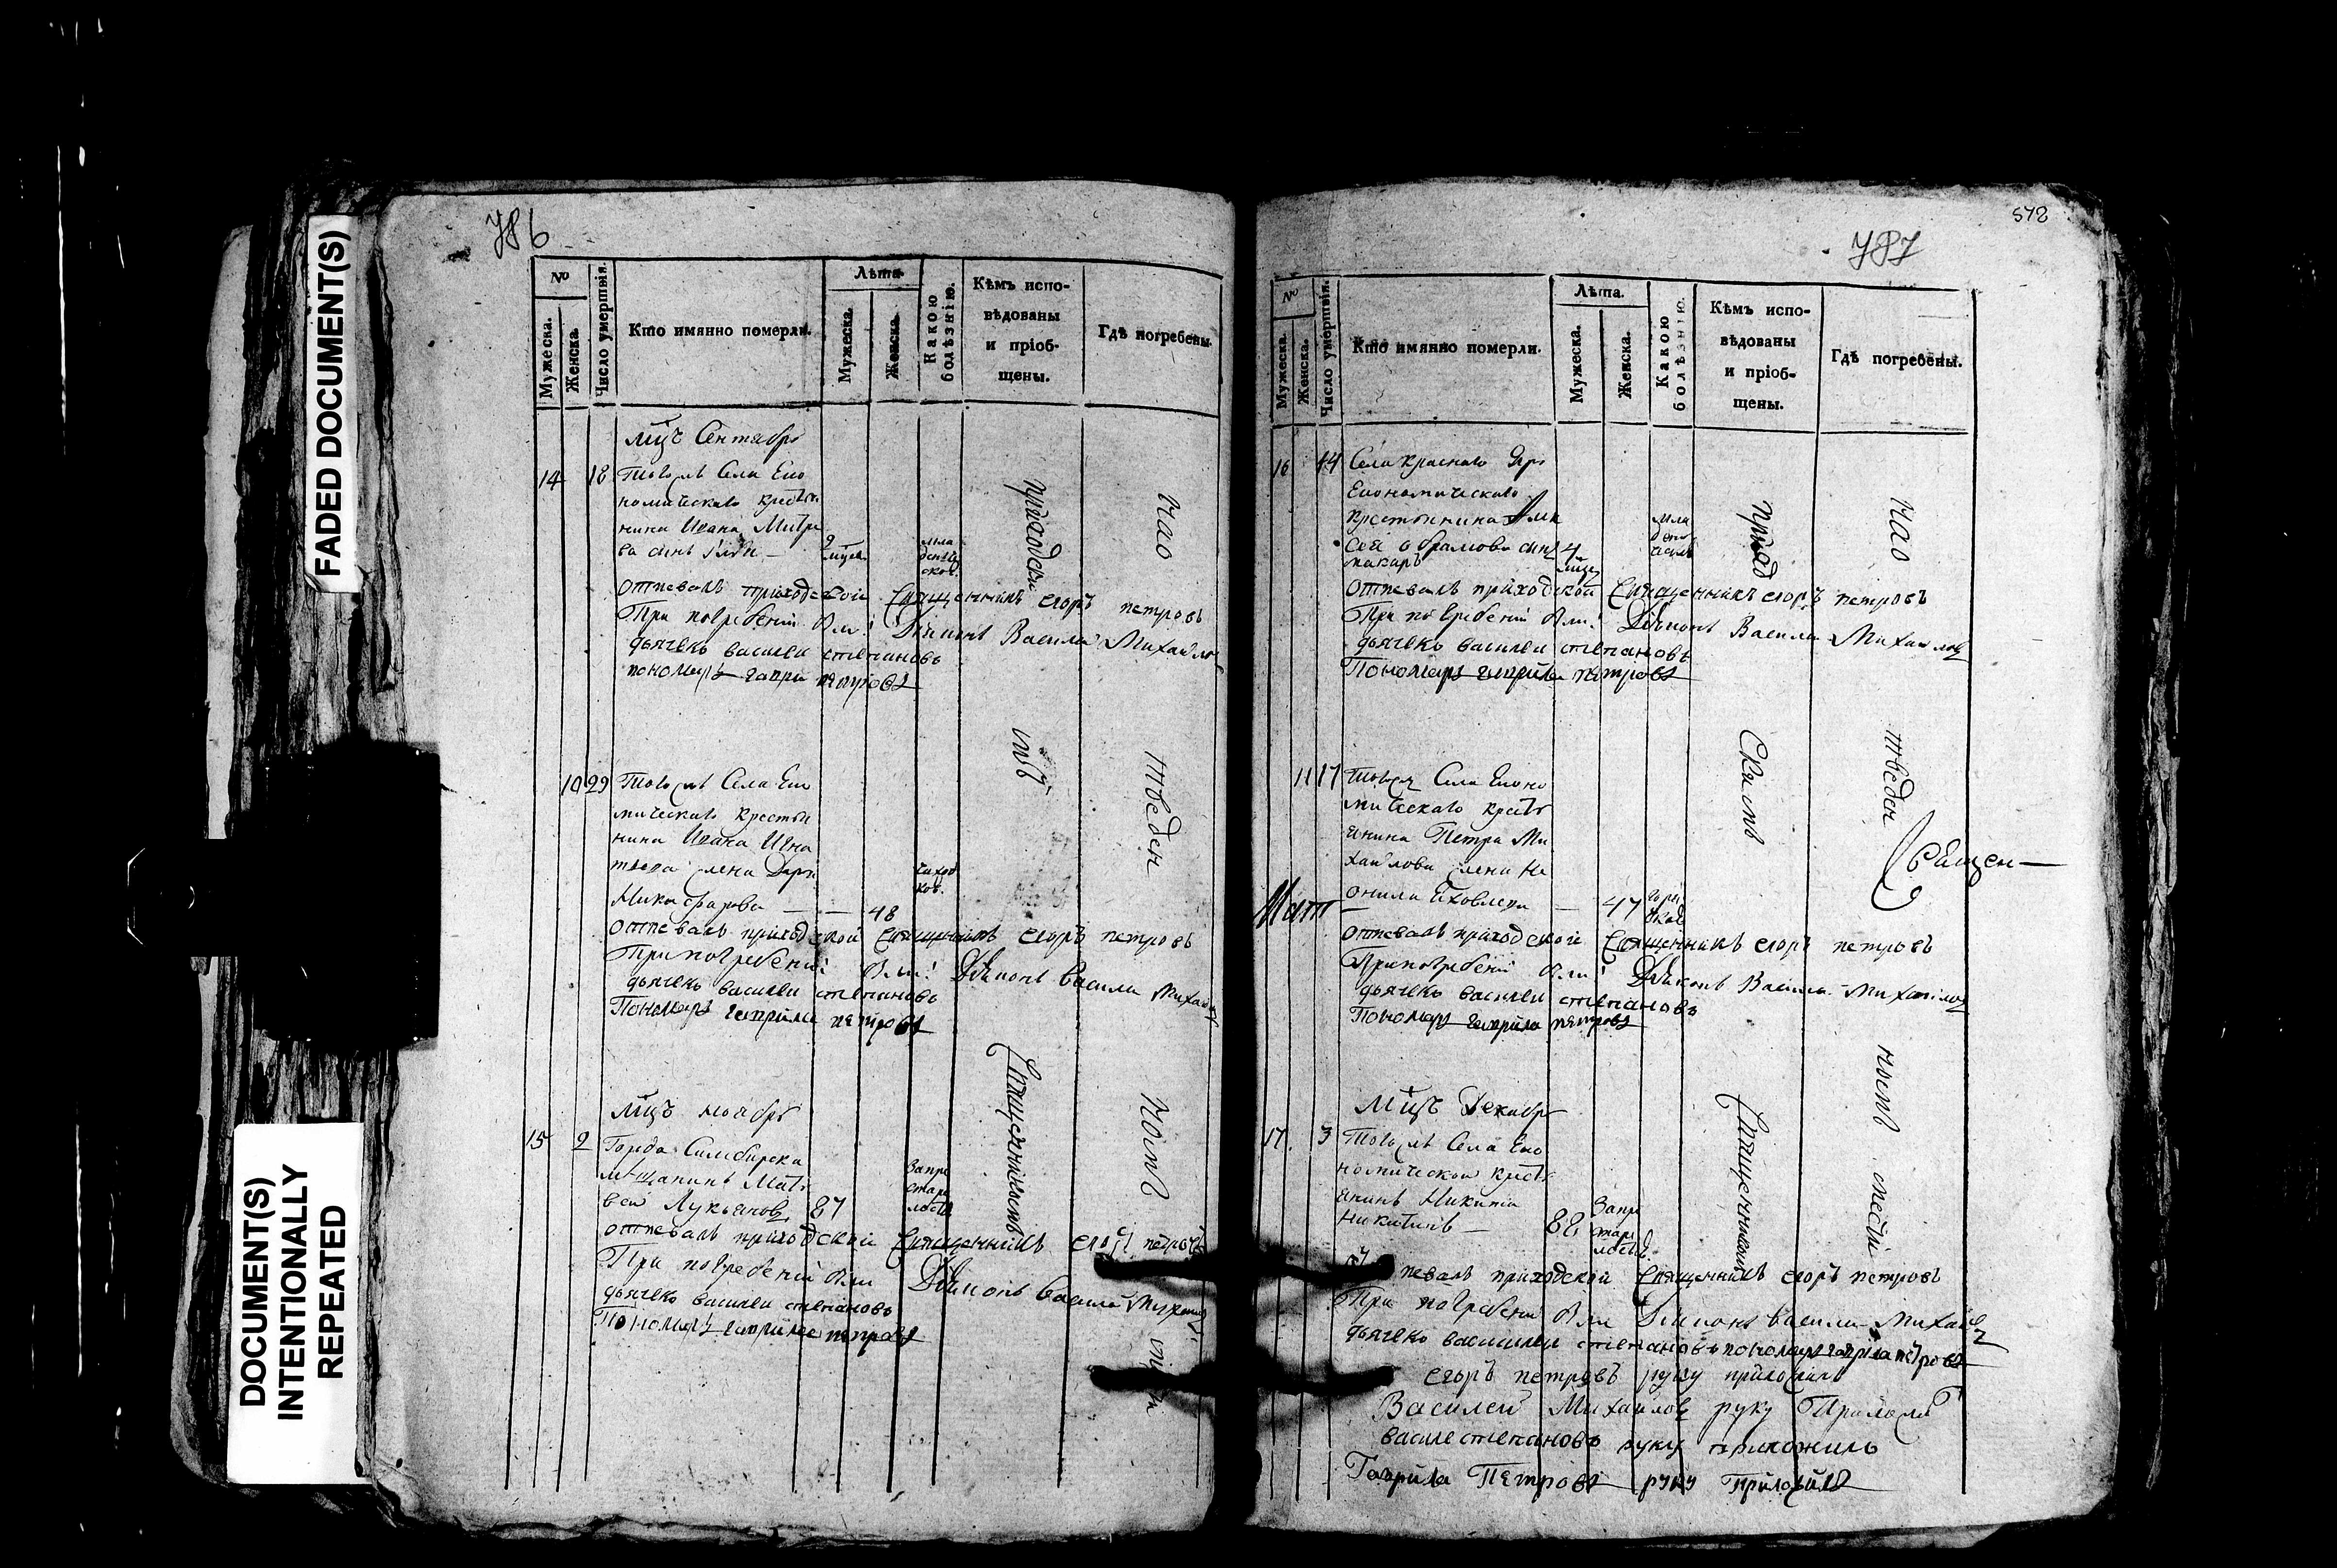 FADED DOCUMENT(S)
DOCUMENT(S)
INTENTIONALLY
REPEATED
786
№
Мужеска.
Женска.
Число умертвія.
Кто имянно померли.
Лѣта.
Мужеска.
Женска.
Какою
болѣзнію.
Кѣмъ испо-
вѣдованы
и пріоб-
щены.
Гдѣ погребены.
мцъ Сентябрь
14 18 Тогожъ Села Еко
номическаго крестья
нина Ивана
сынъ
мла
денче
ской
отпевалъ приходской Священникъ егоръ петровъ
При погребеній были Дьяконъ Василей Михайлов
дьячекъ василеи степановъ
пономарь петровъ
10 29 Тогожъ Села Еко
мическаго крестья
нина Ивана Игна
тьева жена Дарья
Никифорова — — 48
чахот
кою
отпевалъ приходской Священникъ егоръ петровъ
При погребеній были Дьяконъ Василеи Михайлов
дьячекъ василеи степановъ
Пономарь гаврила петровъ
мцъ ноябрь
15 2 Города Симбирска
мѣщанинъ Матв
вей Лукьяновъ 87
Запре
старе
лостью
отпевалъ приходской Священникъ егоръ петровъ
При погребеній были Дьяконъ Василей
дьячекъ василеи степановъ
Пономарь гаврила петровъ
приходски
мъ
Священникомъ
На о
тведен
номъ
572
787
№
Мужеска.
Женска.
Число умертвія.
Кто имянно померли.
Лѣта.
Мужеска.
Женска.
Какою
болѣзнію.
Кѣмъ испо-
вѣдованы
и пріоб-
щены.
Гдѣ погребены.
16 14 Села Краснаго Яру
Економическаго
крестьянина Алек
сея Абрамова сынъ 4
макаръ
мла
денче
отпевалъ приходской Священникъ егоръ петровъ
При погребеній были Дьяконъ Василеи Михайлов
дьячекъ василеи степановъ
Пономарь гаврила петровъ
11 17 Тогожъ Села Еконо
мическаго крестья
янина Петра Ми
хайлова жена Не
онила Яковлева — 47
горя
чкой
отпевалъ приходской Священникъ егоръ петровъ
При погребеній были Дьяконъ Василеи Михайлов
дьячекъ василеи степановъ
Пономарь гаврила петровъ
Мцъ Декабрь
17 3 Тогожъ Села Еко
номической кресть
янинъ Никита
Никитинъ — 88
Запре
старе
лостью
отпевалъ приходской Священникъ егоръ петровъ
При погребеніи были Дьяконъ Василеи Михайлов
дьячекъ василеи степановъ пономарь гаврила петровъ
егоръ петровъ руку приложилъ
Василей Михайлов руку Приложилъ
василе степановъ руку приложилъ
Гаврила Петровъ руку Приложилъ
приход
Скимъ
Священникомъ
На о
тведен
номъ месте
Священ—